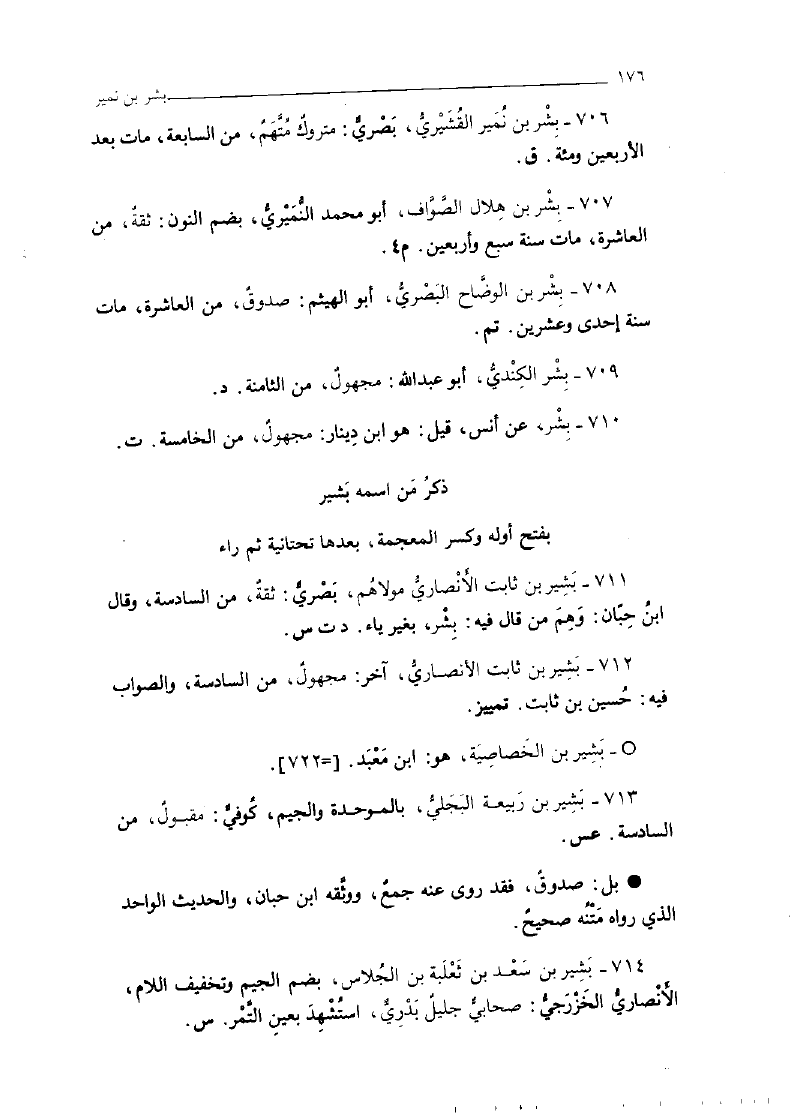 ١٧٦ بشر بن نمير
٧٠٦ - بِشْر بن نُمَير القُشَيْريُّ، بَصْريٌّ: متروكٌ مُتَّهَمٌ، من السابعة، مات بعد
الأربعين ومئة. ق.
٧٠٧ - بِشْر بن هِلال الصَّوَّاف، أبو محمد النُّمَيْريُّ، بضم النون: ثقةٌ، من
العاشرة، مات سنة سبع وأربعين. م٤.
٧٠٨ - بِشْر بن الوضَّاح البَصْريُّ، أبو الهيثم: صدوقٌ، من العاشرة، مات
سنة إحدى وعشرين. تم.
٧٠٩ - بِشْر الكِنْديُّ، أبو عبدالله: مجهولٌ، من الثامنة. د.
٧١٠ - بِشْر، عن أنس، قيل: هو ابن دِينار: مجهولٌ، من الخامسة. ت.
ذكرُ مَن اسمه بَشير
بفتح أوله وكسر المعجمة، بعدها تحتانية ثم راء
٧١١ - بَشِير بن ثابت الأَنْصاريُّ مولاهُم، بَصْريٌّ: ثقةٌ، من السادسة، وقال
ابنُ حِبَّان: وَهِمَ من قال فيه: بِشْر، بغير ياء. د ت س.
٧١٢ - بَشِير بن ثابت الأنصاريُّ، آخر: مجهولٌ، من السادسة، والصواب
فيه: حُسين بن ثابت. تمييز.
○ - بَشِير بن الخَصاصِيَة، هو: ابن مَعْبَد. [=٧٢٢].
٧١٣ - بَشِير بن رَبيعة البَجَليُّ، بالموحدة والجيم، كُوفيٌّ: مقبولٌ، من
السادسة. عس.
● بل: صدوقٌ، فقد روى عنه جمعٌ، ووثَّقه ابن حبان، والحديث الواحد
الذي رواه مَتْنُه صحيحٌ.
٧١٤ - بَشِير بن سَعْد بن ثَعْلَبة بن الجُلاس، بضم الجيم وتخفيف اللام،
الأَنْصاريُّ الخَزْرَجيُّ: صحابيٌّ جليلٌ بَدْرِيٌّ، استُشْهِدَ بعينِ التَّمْر. س.